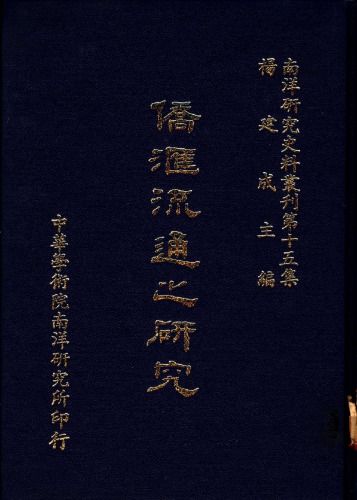 南洋研究史料叢刊第十五集
楊建成主編
僑滙流通之研究
中華學術院南洋研究所印行